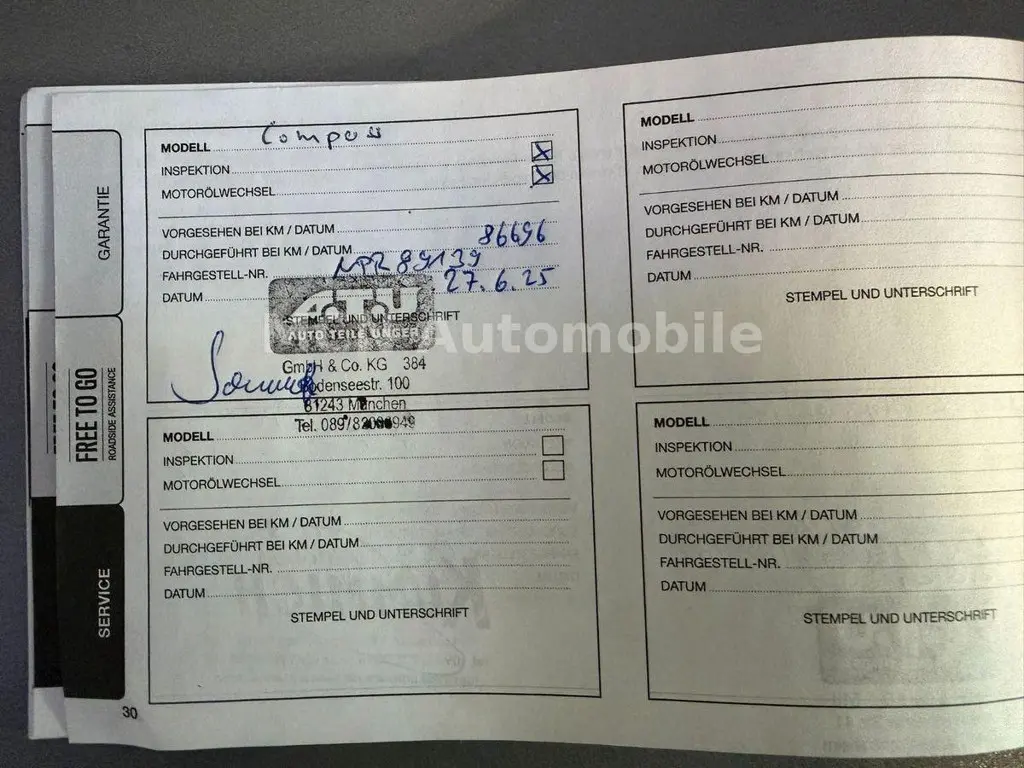 GARANTIE
FREE TO GO
ROADSIDE ASSISTANCE
SERVICE
MODELL Compass
INSPEKTION X
MOTORÖLWECHSEL X
VORGESEHEN BEI KM / DATUM
DURCHGEFÜHRT BEI KM / DATUM 86696
FAHRGESTELL-NR. NPR89139
DATUM 27.6.25
STEMPEL UND UNTERSCHRIFT
ATU
AUTO TEILE UNGER
GmbH & Co. KG 384
Bodenseestr. 100
81243 München
Tel. 089/
MODELL
INSPEKTION
MOTORÖLWECHSEL
VORGESEHEN BEI KM / DATUM
DURCHGEFÜHRT BEI KM / DATUM
FAHRGESTELL-NR.
DATUM
STEMPEL UND UNTERSCHRIFT
MODELL
INSPEKTION
MOTORÖLWECHSEL
VORGESEHEN BEI KM / DATUM
DURCHGEFÜHRT BEI KM / DATUM
FAHRGESTELL-NR.
DATUM
STEMPEL UND UNTERSCHRIFT
MODELL
INSPEKTION
MOTORÖLWECHSEL
VORGESEHEN BEI KM / DATUM
DURCHGEFÜHRT BEI KM / DATUM
FAHRGESTELL-NR.
DATUM
STEMPEL UND UNTERSCHRIFT
30
Automobile